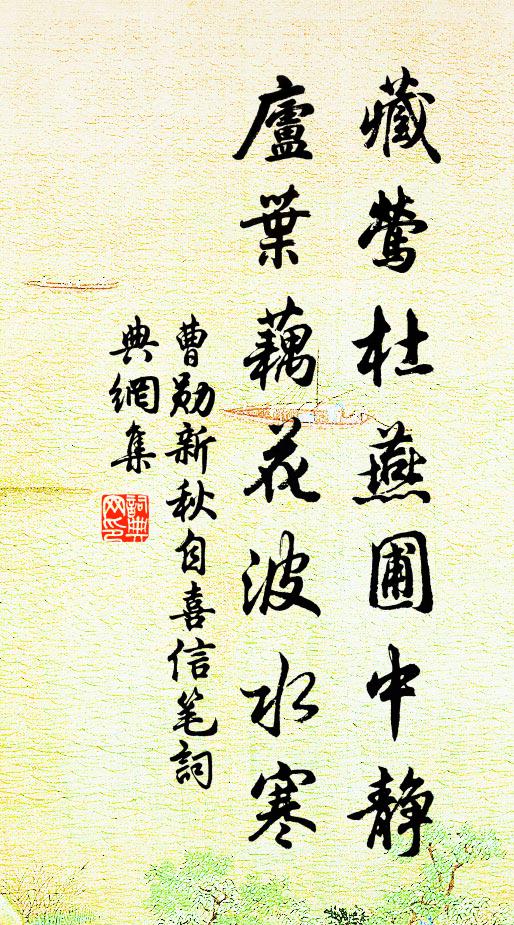 藏鶯杜燕圃中静
廬葉藕花波水寒
曹勋新秋自喜信笔詞
典網集
詞典
网印